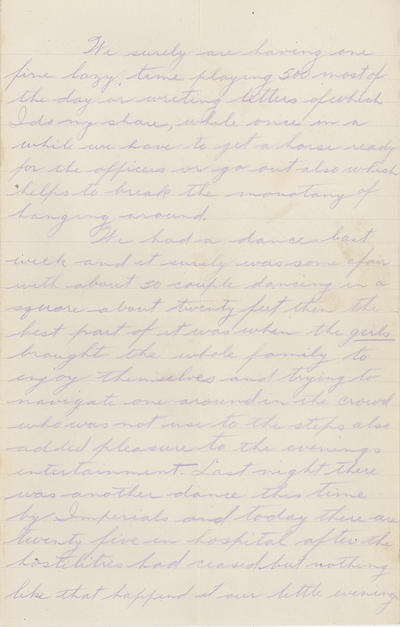 We surely are having one
fine lazy time playing 500 most of
the day or writing letters of which
I do my share, while once in a
while we have to get a horse ready
for the officers or go out also which
helps to break the monotany of
hanging around.
We had a dance last
week and it surely was some afair
with about 50 couple dancing in a
square about twenty feet then the
best part of it was when the girls
brought the whole family to
enjoy themselves and trying to
navigate one around in the crowd
who was not use to the steps also
added pleasure to the evenings
entertainment. Last night there
was another dance this time
by Imperials and today there are
twenty five in hospital after the
hostilities had ceased but nothing
like that happend at our little evening